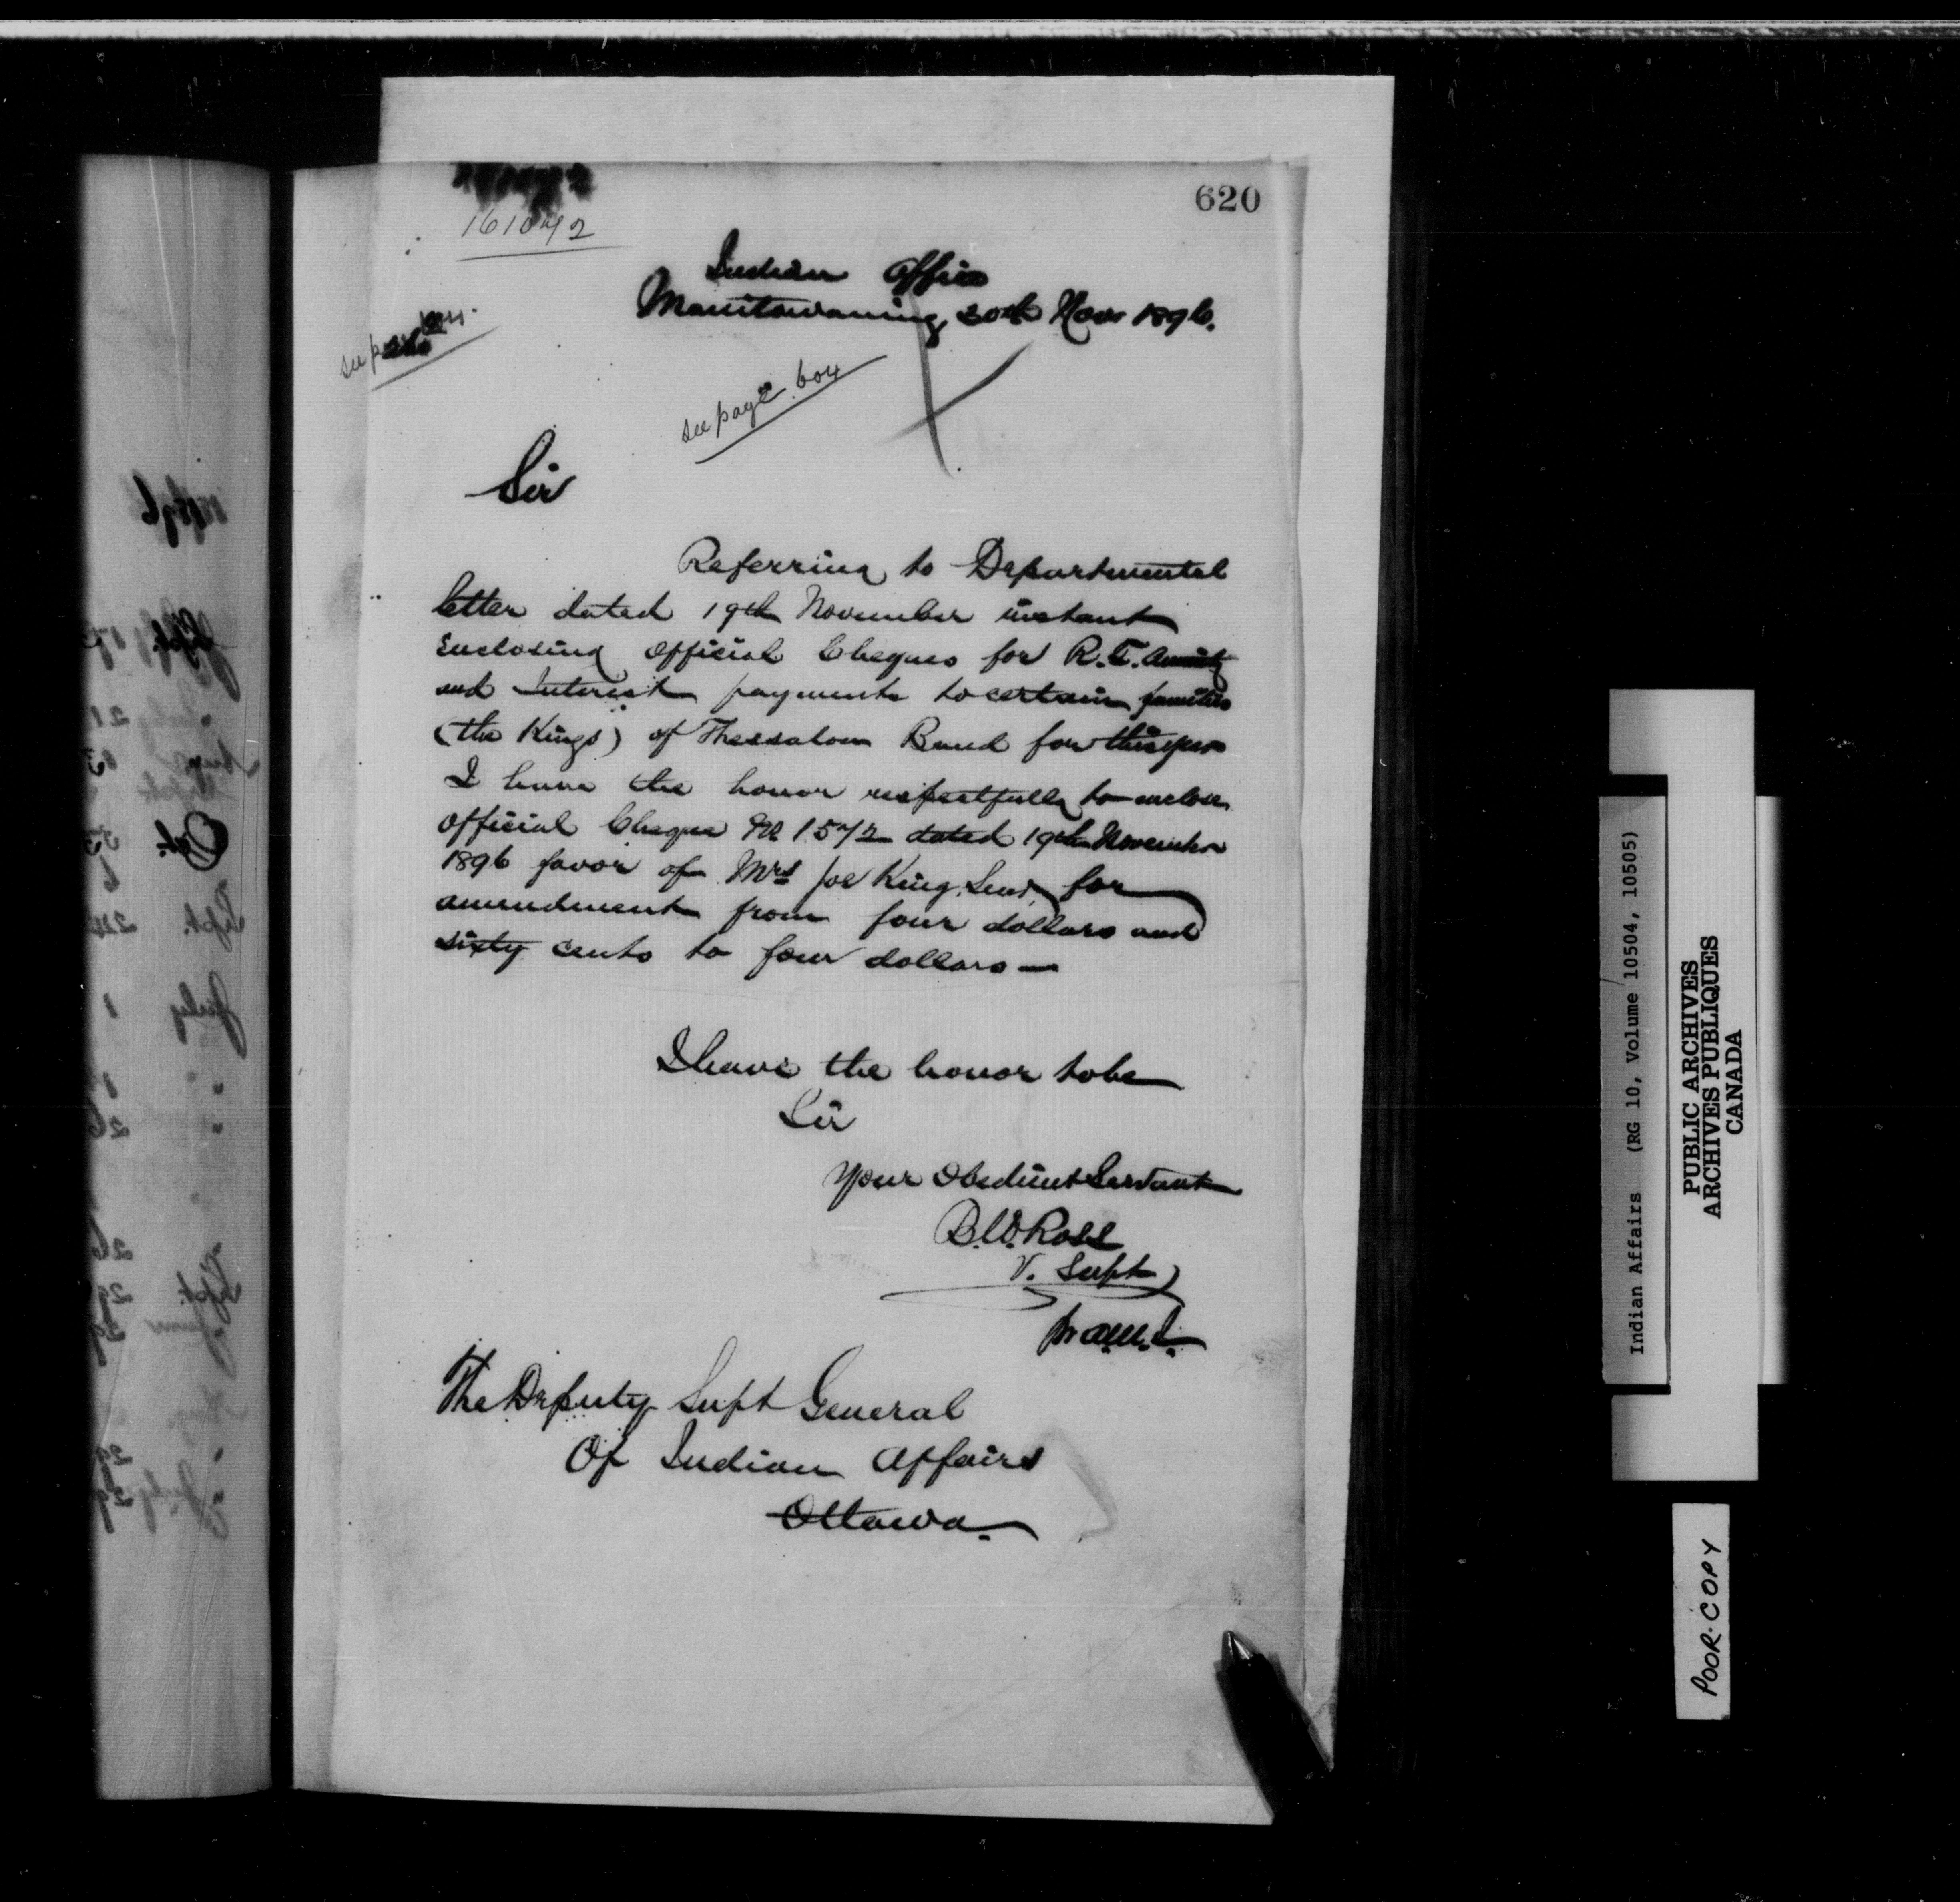 620
Indian Office
Manitowaning, 30th Nov 1896.
see page 604
Sir
Referring to Departmental
letter dated 19th November instant
enclosing official Cheques for R.T. Annuity
and Interest payments to certain families
(the Kings) of Thessalon Band for this year
I have the honor respectfully to enclose
official Cheque No 1572 dated 19th November
1896 favor of Mrs Joe King Senr for
amendment from four dollars and
sixty cents to four dollars —
I have the honor to be
Sir
Your Obedient Servant
B.W. Ross
V. Supt
The Deputy Supt General
Of Indian Affairs
Ottawa.
Indian Affairs (RG 10, Volume 10504, 10505)
PUBLIC ARCHIVES
ARCHIVES PUBLIQUES
CANADA
POOR COPY